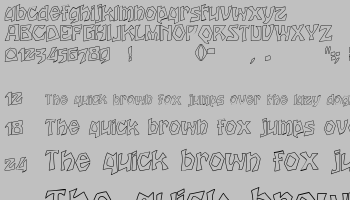 abcdefghijklmnopqrstuvwxyz
ABCDEFGHIJKLMNOPQRSTUVWXYZ
0123456789 ! ()- , . ":;
12 The quick brown fox jumps over the lazy dog
18 The quick brown fox jumps over
24 The quick brown fox ju
The quick brown